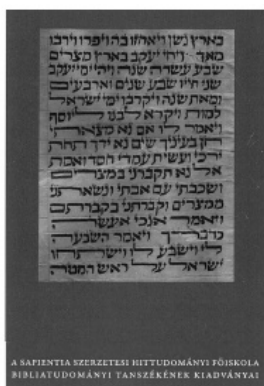 בארץ גשן ויאחזו בה ויפרו וירבו
מאד ויחי יעקב בארץ מצרים
שבע עשרה שנה ויהי ימי יעקב
שני חייו שבע שנים וארבעים
ומאת שנה ויקרבו ימי ישראל
למות ויקרא לבנו ליוסף
ויאמר לו אם נא מצאתי
חן בעיניך שים נא ידך תחת
ירכי ועשית עמדי חסד ואמת
אל נא תקברני במצרים
ושכבתי עם אבתי ונשאתני
ממצרים וקברתני בקברתם
ויאמר אנכי אעשה
כדברך ויאמר השבעה
לי וישבע לו וישתחו
ישראל על ראש המטה
A SAPIENTIA SZERZETESI HITTUDOMÁNYI FŐISKOLA
BIBLIATUDOMÁNYI TANSZÉKÉNEK KIADVÁNYAI